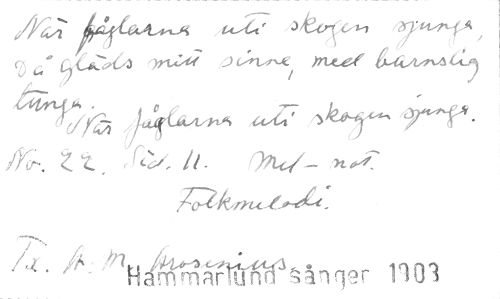 När fåglarna uti skogen sjunga,
då gläds mitt sinne, med barnslig
tunga.
När fåglarna uti skogen sjunga.
No. 22. Sid. 11. Mel-not.
Folkmelodi.
Tx. A. M. Arosenius
Hammarlund sånger 1903